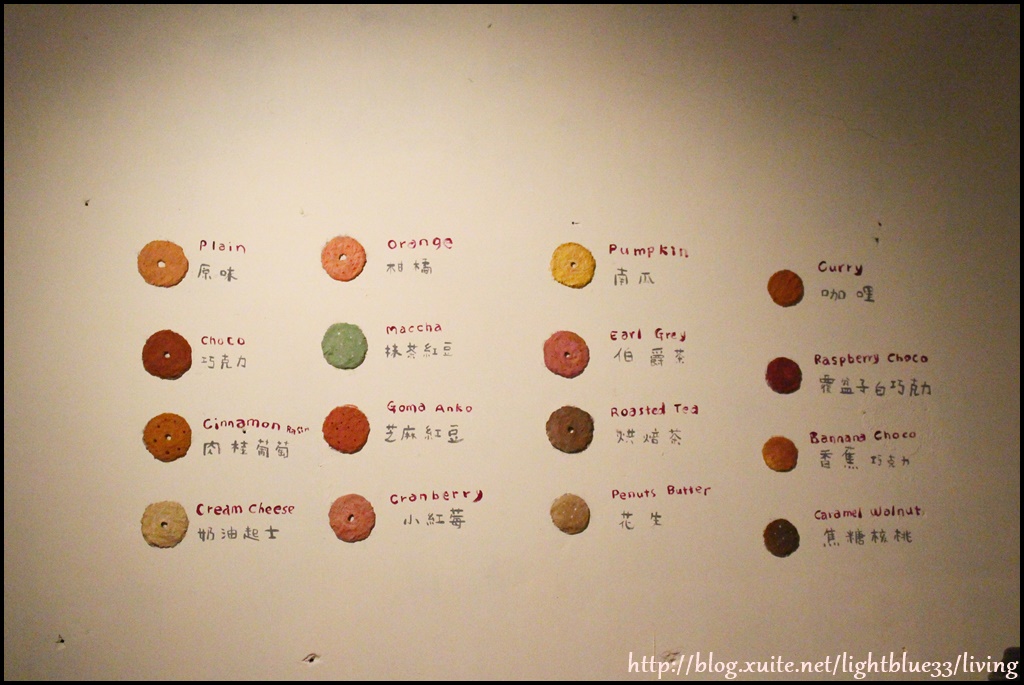 Plain
原味
Choco
巧克力
Cinnamon Raisin
肉桂葡萄
Cream Cheese
奶油起士
Orange
柑橘
Maccha
抹茶紅豆
Goma Anko
芝麻紅豆
Cranberry
小紅莓
Pumpkin
南瓜
Earl Grey
伯爵茶
Roasted Tea
烘焙茶
Penuts Butter
花生
Curry
咖哩
Raspberry Choco
覆盆子白巧克力
Bannana Choco
香蕉巧克力
Caramel Walnut
焦糖核桃
http://blog.xuite.net/lightblue33/living